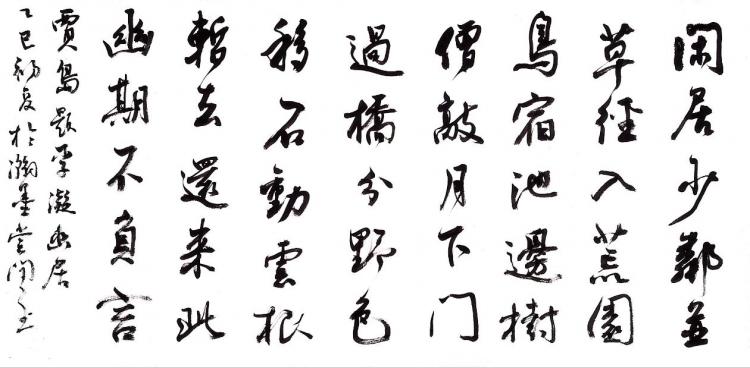 閑居少鄰並
草徑入荒園
鳥宿池邊樹
僧敲月下門
過橋分野色
移石動雲根
暫去還来此
幽期不負言
賈島題李凝幽居
乙巳初夏於瀚墨堂